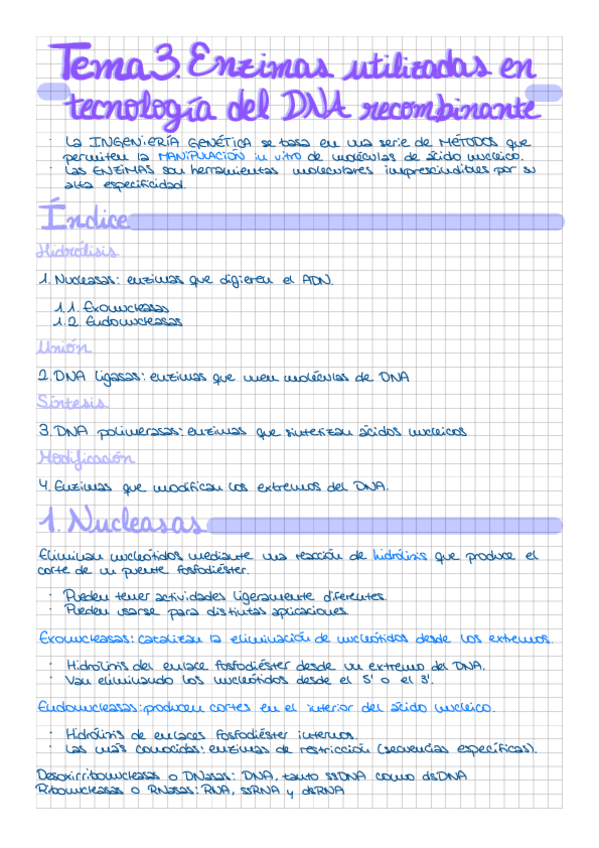 Tema 3. Enzimas utilizadas en
tecnología del DNA recombinante
· La INGENIERÍA GENÉTICA se basa en una serie de MÉTODOS que
permiten la MANIPULACIÓN in vitro de moléculas de ácido nucleico.
· Las ENZIMAS son herramientas moleculares imprescindibles por su
alta especificidad.
Índice
Hidrólisis
1. Nucleasas: enzimas que digieren el ADN.
1.1. Exonucleasas
1.2. Endonucleasas
Unión
2. DNA ligasas: enzimas que unen moléculas de DNA
Síntesis
3. DNA polimerasas: enzimas que sintetizan ácidos nucleicos
Modificación
4. Enzimas que modifican los extremos del DNA.
1. Nucleasas
Eliminan nucleótidos mediante una reacción de hidrólisis que produce el
corte de un puente fosfodiéster.
· Pueden tener actividades ligeramente diferentes.
· Pueden usarse para distintas aplicaciones.
Exonucleasas: catalizan la eliminación de nucleótidos desde los extremos.
· Hidrólisis del enlace fosfodiéster desde un extremo del DNA.
· Van eliminando los nucleótidos desde el 5' o el 3'.
Endonucleasas: producen cortes en el interior del ácido nucleico.
· Hidrólisis de enlaces fosfodiéster internos.
· Las más conocidas: enzimas de restricción (secuencias específicas).
Desoxirribonucleasas o DNasas: DNA, tanto ssDNA como dsDNA
Ribonucleasas o RNasas: RNA, ssRNA y dsRNA